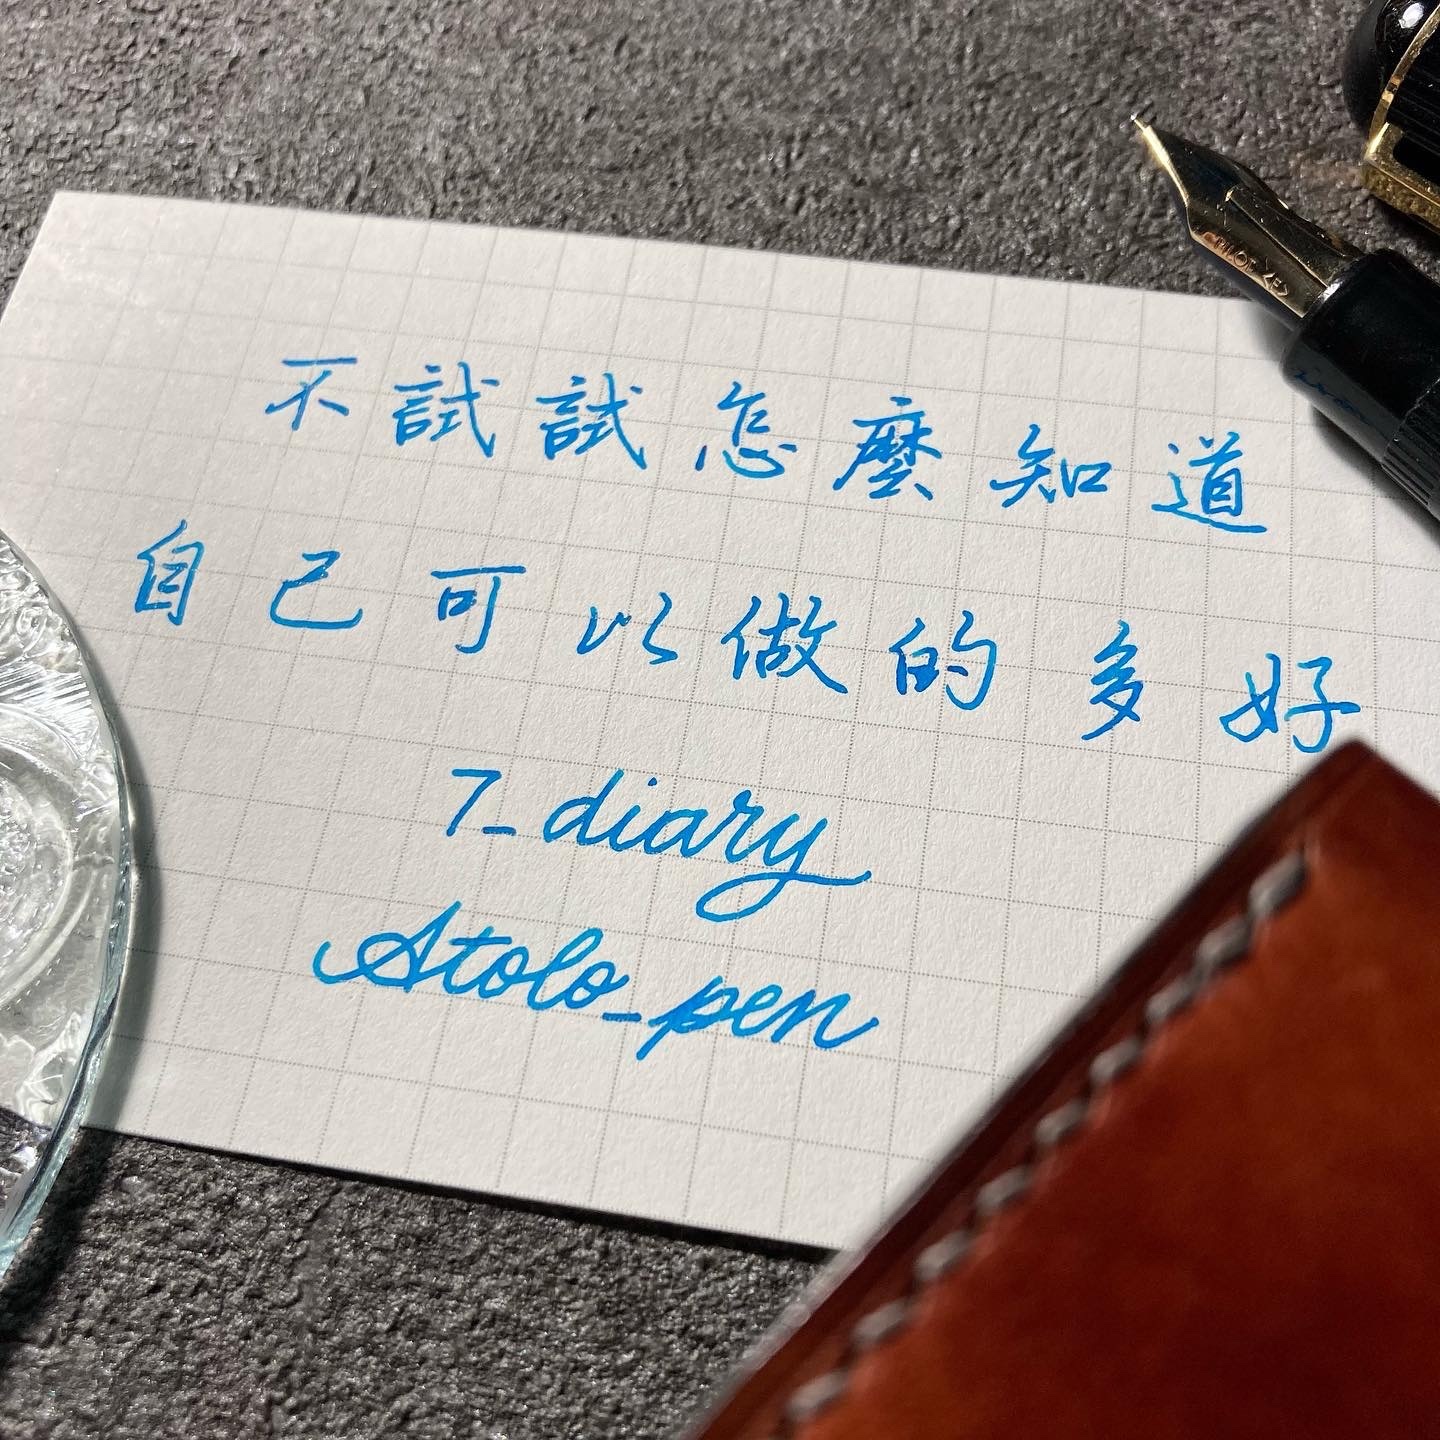 不試試怎麼知道
自己可以做的多好
7_diary
Stolo_pen
PILOT <F>